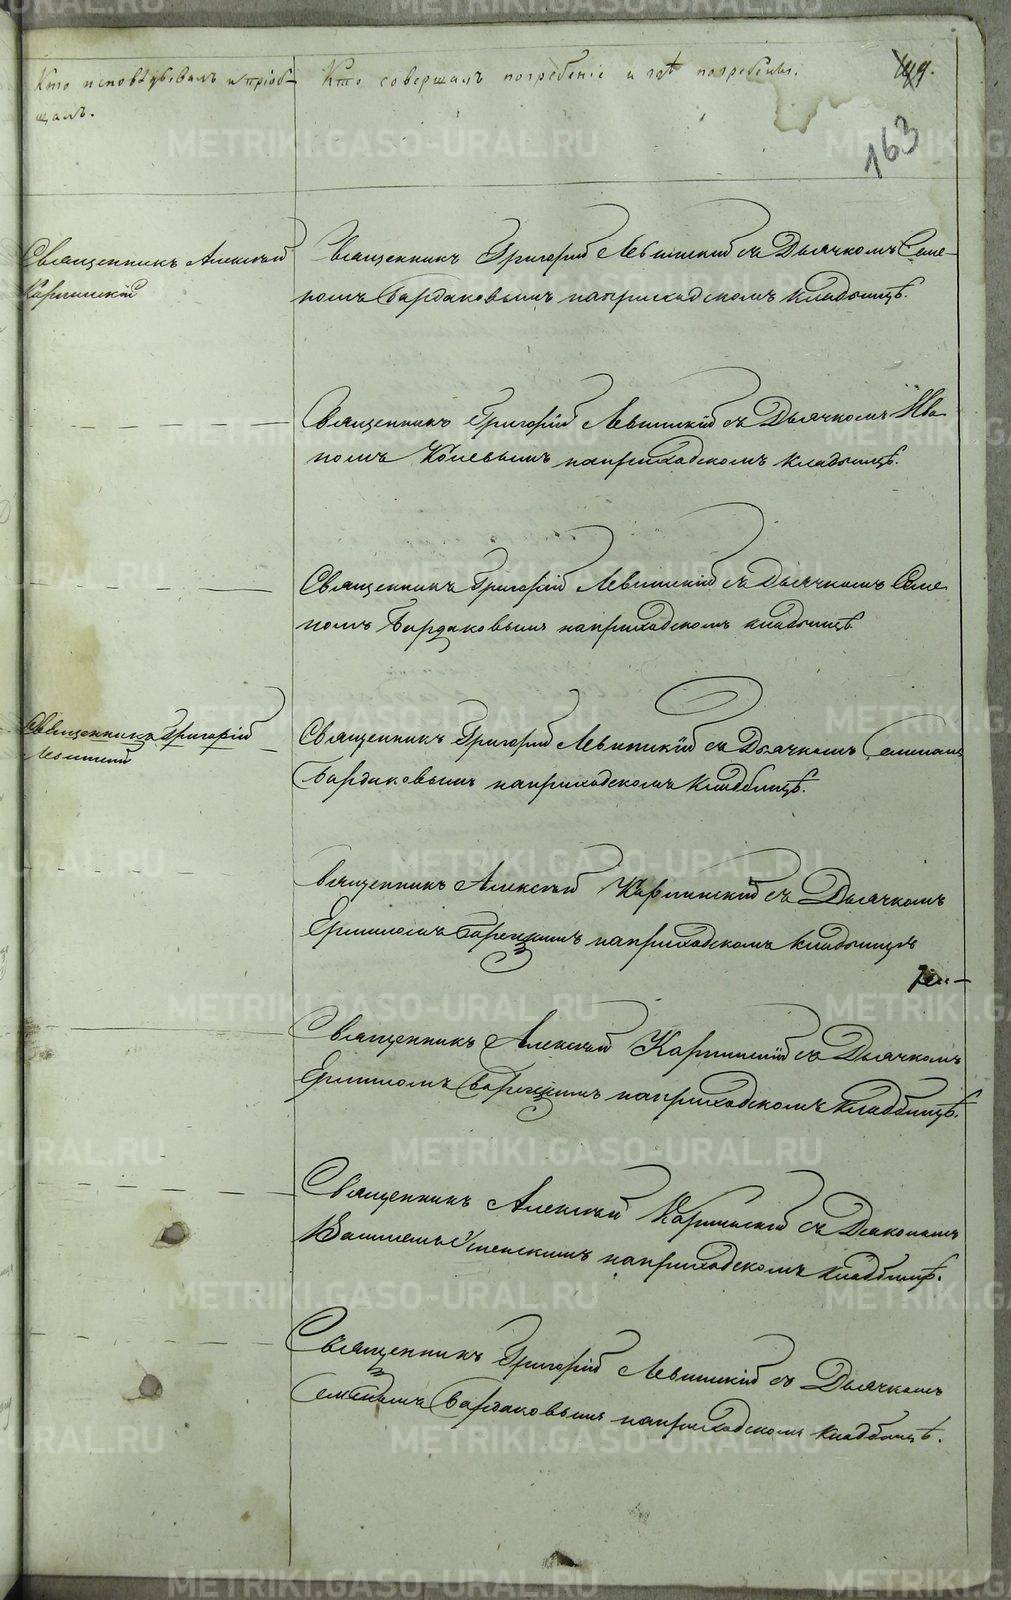 Кто исповѣдывалъ и пріоб-
щалъ.
Кто совершалъ погребеніе и гдѣ погребены.
163
Священникъ Алексѣй
Карпинскій
Священникъ Григорій Левитскій съ Дьячкомъ Семе-
номъ Бардаковымъ наприходскомъ кладбищѣ.
Священникъ Григорій Левитскій съ Дьячкомъ Ива
номъ наприходскомъ кладбищѣ.
Священникъ Григорій Левитскій съ Дьячкомъ Семе
номъ Бардаковымъ наприходскомъ кладбищѣ
Священникъ Григорій
Левитскій
Священникъ Григорій Левитскій съ Дьячкомъ Семеномъ
Бардаковымъ наприходскомъ кладбищѣ.
Священникъ Алексѣй Карпинскій съ Дьячкомъ
Ермиломъ наприходскомъ кладбищѣ
Священникъ Алексѣй Карпинскій съ Дьячкомъ
Ермиломъ наприходскомъ кладбищѣ.
Священникъ Алексѣй Карпинскій съ Діакономъ
Василіемъ Успенскимъ наприходскомъ кладбищѣ.
Священникъ Григорій Левитскій съ Дьячкомъ
Семеномъ Бардаковымъ наприходскомъ кладбищѣ.
METRIKI.GASO-URAL.RU